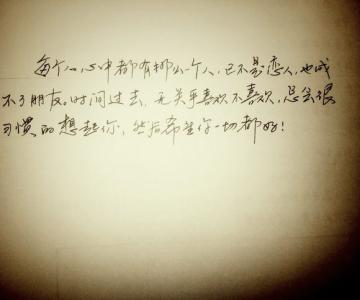 每个人心中都有那么一个人，已不是恋人，也成
不了朋友。时间过去，无关乎喜欢不喜欢，总会很
习惯的想起你，然后希望你一切都好！